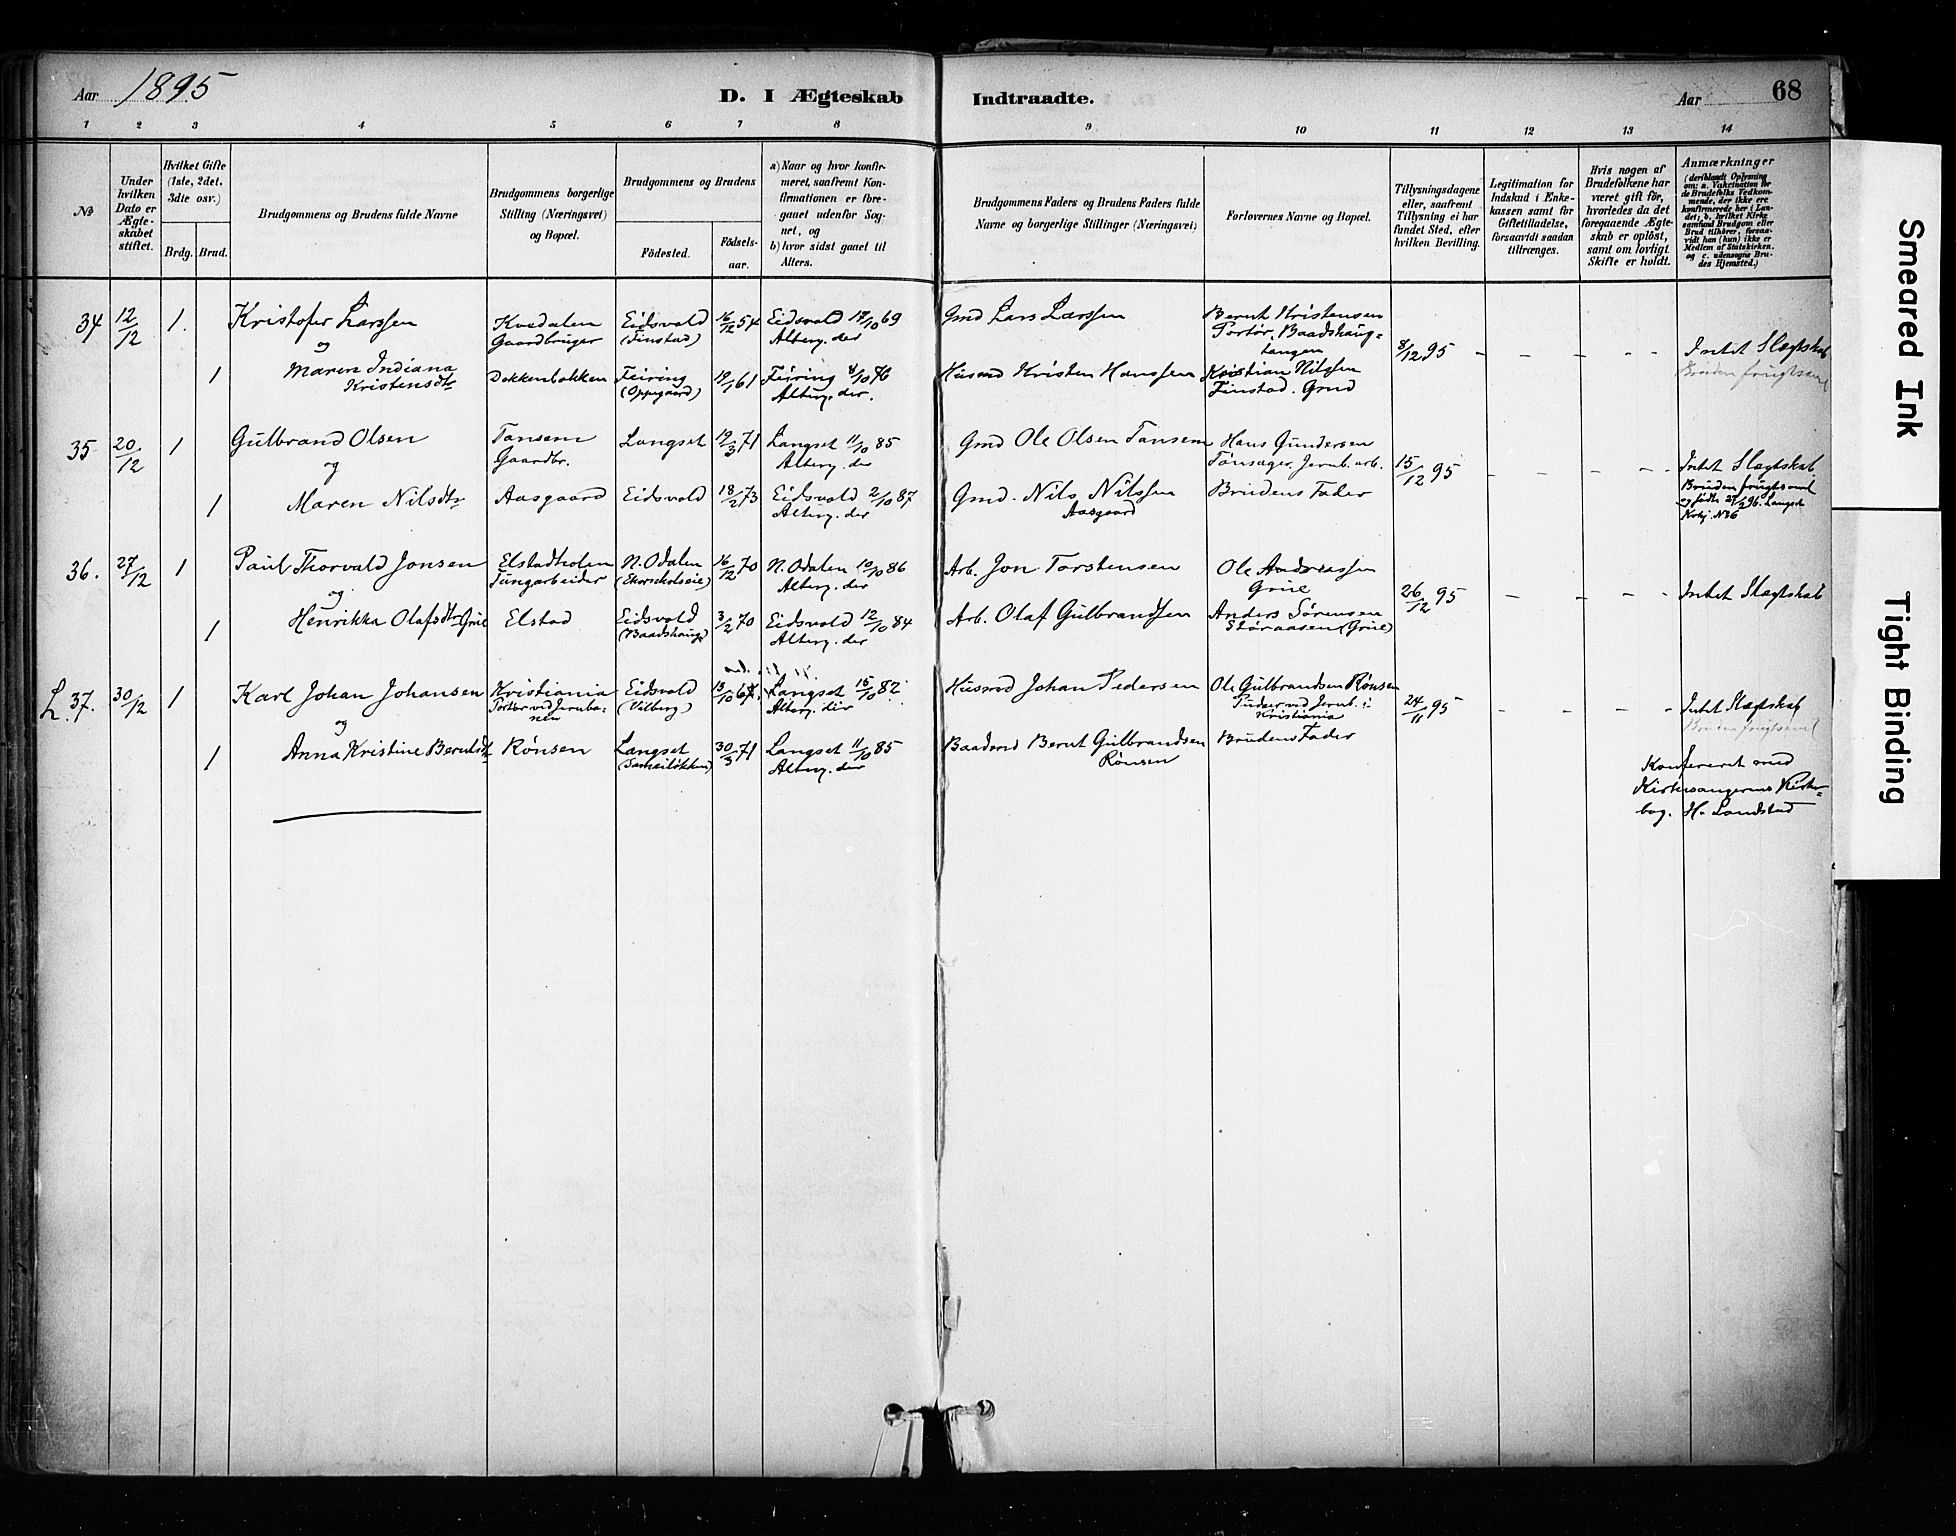 Aar 1895
D. I Ægteskab
Indtraadte.
Aar 68
1 2 3 4 5 6 7 8 9 10 11 12 13 14
№
Under hvilken Dato er Ægteskabet stiftet.
Hvilket Gifte (1ste, 2det, 3die osv.)
Brdg. Brud.
Brudgommens og Brudens fulde Navne
Brudgommens borgerlige Stilling (Næringsvei) og Bopæl.
Brudgommens og Brudens
Födested.
Födselsaar.
a) Naar og hvor konfirmeret, saafremt Konfirmationen er foregaaet udenfor Sognet, og
b) hvor sidst gaaet til Alters.
Brudgommens Faders og Brudens Faders fulde Navne og borgerlige Stillinger (Næringsvei)
Forlovernes Navne og Bopæl.
Tillysningsdagene eller, saafremt Tillysning ei har fundet Sted, efter hvilken Bevilling.
Legitimation for Indskud i Enkekassen samt for Giftetilladelse, forsaavidt saadan tiltrænges.
Hvis nogen af Brudefolkene har været gift før, hvorledes da det foregaaende Ægteskab er opløst, samt om lovligt Skifte er holdt.
Anmærkninger
(deriblandt Oplysning om: a. Vakcination for de Brudefolks Vedkommende, der ikke ere konfirmerede her i Landet; b. hvilket Kirkesamfund Brudgom eller Brud tilhører, forsaavidt han (hun) ikke er Medlem af Statskirken, og c. udensogns Brudes Hjemsted.)
34 12/12 1. Kristofer Larssen Kvedalen Eidsvold 16/12 54 Eidsvold 17/10 69 Gmd Lars Larssen Bernt Kristensen
og Gaardbruger (Finstad) Alterg. der Portør, Baadshaug-
tangen 8/12 95 – – – – – Intet Slægtskab
1 Maren Indiana Dokkenbakken Feiring 19/1 61 Feiring 8/10 76 Husmd Kristen Hanssen Kristian Nilssen Bruden frugtsaml
Kristensdtr (Oppegaard) Alterg. der. Finstad. Gmd
35 20/12 1 Gulbrand Olsen Tansem Langset 19/3 71 Langset 11/10 85 Gmd Ole Olsen Tansem Hans Gundersen
og Gaardbr. Alterg. der Tønsager, Jernb. arb. 15/12 95 – – – – Intet Slægtskab
1 Maren Nilsdtr Aasgaard Eidsvold 18/2 73 Eidsvold 2/10 87 Gmd. Nils Nilssen Brudens Fader Bruden frugtsaml
Alterg. der Aasgaard og fødte 27/2 96. Langset
Krbj. №6
36. 27/12 1 Paul Thorvald Jonsen Elstadholen N. Odalen 16/12 70 N. Odalen 10/10 86 Arb. Jon Torstensen Ole Andreassen
og Tungarbeider Alterg. der Grue 26/12 95 – – – Intet Slægtskab
1 Henrikka Olafsdtr Grue Elstad Eidsvold 3/2 70 Eidsvold 12/10 84 Arb. Olaf Gulbrandsen Anders Sörensen
(Baadshaug) Alterg. der Støraasen (Grue)
L. 37. 30/12 1 Karl Johan Johansen Kristiania Eidsvold 13/10 67. Langset 15/10 82. Husmd Johan Pedersen Ole Gulbrandsen Rønsen
og Portør ved Jernba- (Vilberg) Alterg. der Pudser ved Jernb. i
nen Kristiania 24/11 95 – – – – Intet Slægtskab
1 Anna Kristine Berntsdtr Rønsen Langset 30/3 71 Langset 11/10 85 Baadsmd Bernt Gulbrandsen Brudens Fader Bruden frugtsaml
Alterg. der Rønsen
Konfereret med
Kirkesangerens Kirke-
bog. H. Landstad
Smeared Ink
Tight Binding